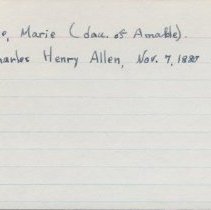 e, Marie (dau. of Amable).
harles Henry Allen, Nov. 7, 1887